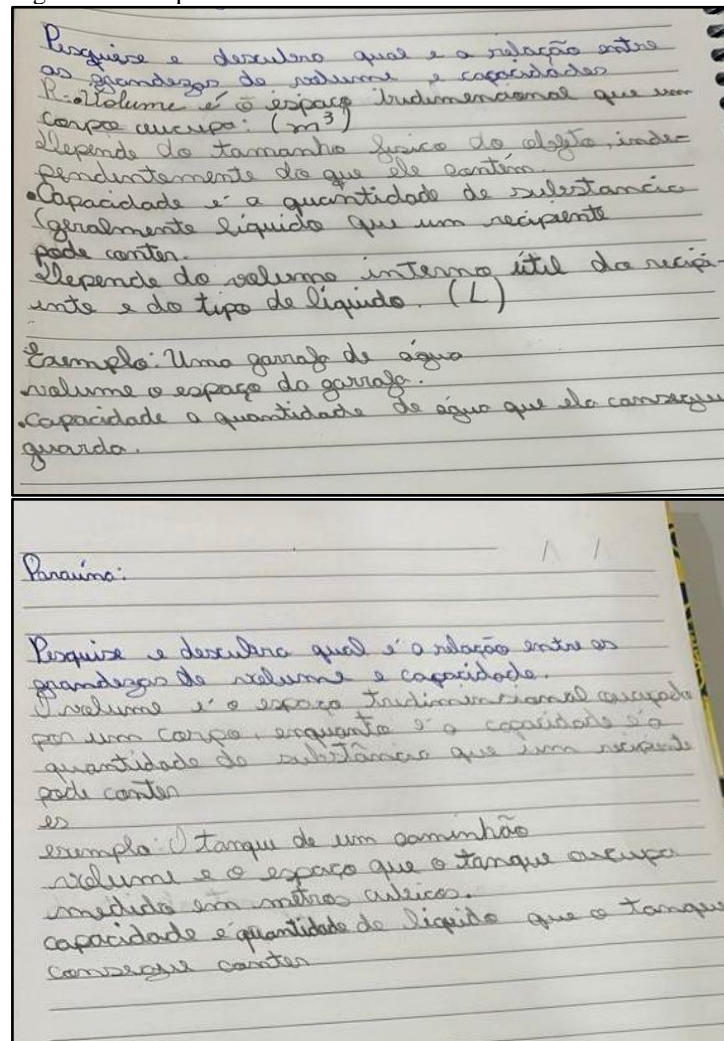 Pesquise e descubra qual e a relação entre
as grandezas de volume e capacidades
R=Volume é o espaço tridimencional que um
corpo aucupa: (m³)
Depende do tamanho fisico do objeto, inde-
pendentemente do que ele contém.
•Capacidade é a quantidade de substancia
(geralmente liquido que um recipiente
pode conter.
Depende do volume interno útil do recipi-
ente e do tipo de liquido. (L)
Exemplo: Uma garrafa de água
volume o espaço da garrafa.
•capacidade a quantidade de água que ela consegue
guarda.
/ /
Paraúna:
Pesquise e descubra qual é a relação entre as
grandezas de volume e capacidade.
O volume é o espaço tridimensional ocupado
por um corpo, enquanto é a capacidade é a
quantidade de substância que um recipiente
pode conter
es
exemplo: O tanque de um caminhão
volume e o espaço que o tanque ocupa
medido em mêtros cubicos.
capacidade e quantidade de liquido que o tanque
consegue conter